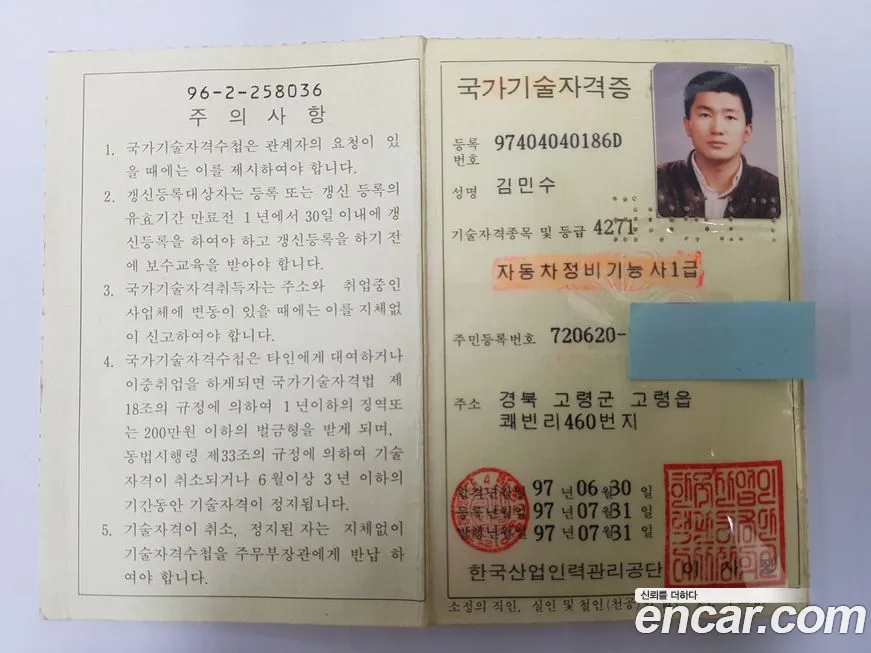 96-2-258036
주 의 사 항
1. 국가기술자격수첩은 관계자의 요청이 있
을 때에는 이를 제시하여야 합니다.
2. 갱신등록대상자는 등록 또는 갱신 등록의
유효기간 만료전 1년에서 30일 이내에 갱
신등록을 하여야 하고 갱신등록을 하기 전
에 보수교육을 받아야 합니다.
3. 국가기술자격취득자는 주소와 취업중인
사업체에 변동이 있을 때에는 이를 지체없
이 신고하여야 합니다.
4. 국가기술자격수첩은 타인에게 대여하거나
이중취업을 하게되면 국가기술자격법 제
18조의 규정에 의하여 1년이하의 징역또
는 200만원 이하의 벌금형을 받게 되며,
동법시행령 제33조의 규정에 의하여 기술
자격이 취소되거나 6월이상 3년 이하의
기간동안 기술자격이 정지됩니다.
5. 기술자격이 취소, 정지된 자는 지체없이
기술자격수첩을 주무부장관에게 반납 하
여야 합니다.
국가기술자격증
등록
번호 97404040186D
성명 김민수
기술자격종목 및 등급 4271
자동차정비기능사1급
주민등록번호 720620-
주소 경북 고령군 고령읍
쾌빈리460번지
합격년월일 97 년 06 월 30 일
등록년월일 97 년 07 월 31 일
발행년월일 97 년 07 월 31 일
한국산업인력관리공단 이 사 장
소정의 직인, 실인 및 철인(천공)
신뢰를 더하다
encar.com